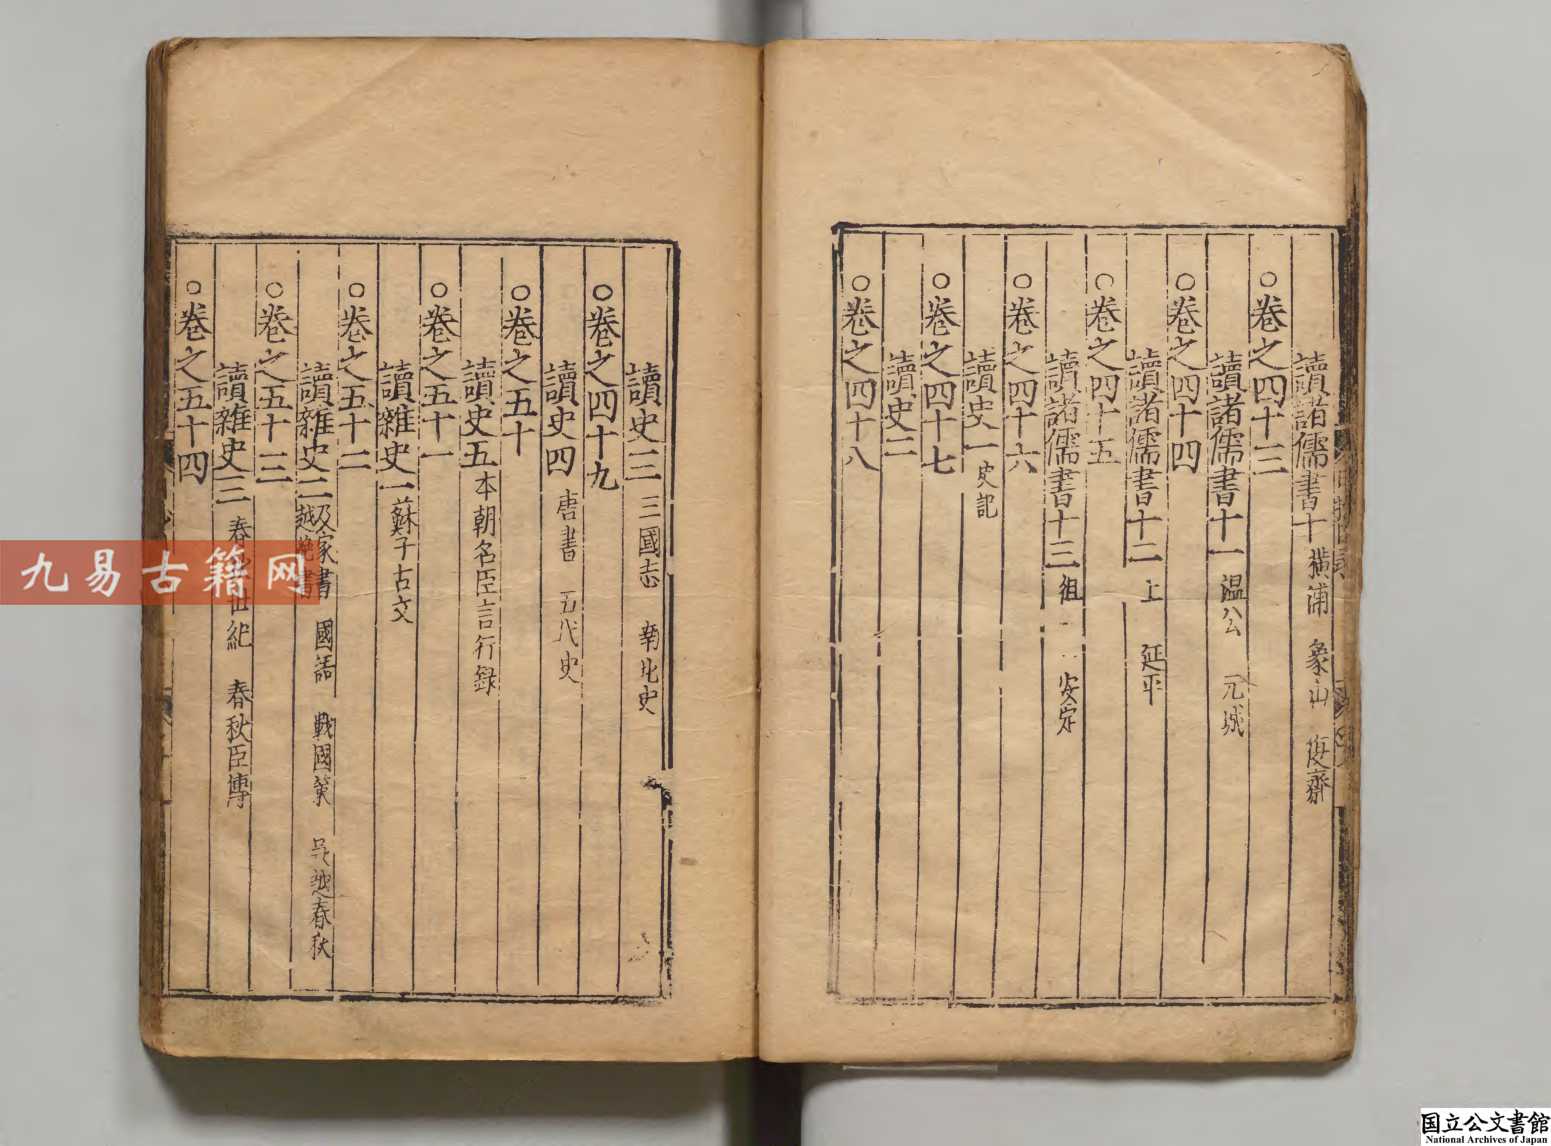 讀諸儒書十 橫浦 象山 復齋
○卷之四十三
讀諸儒書十一 溫公 元城
○卷之四十四
讀諸儒書十二 上 延平
○卷之四十五
讀諸儒書十三 徂 安定
○卷之四十六
讀史一 史記
○卷之四十七
讀史二
○卷之四十八
讀史三 三國志 南北史
○卷之四十九
讀史四 唐書 五代史
○卷之五十
讀史五 本朝名臣言行録
○卷之五十一
讀雜史一 蘇子古文
○卷之五十二
讀雜史二 汲冢書 國語 戰國策 吳越春秋
越絶書
○卷之五十三
讀雜史三 春 世紀 春秋臣傳
○卷之五十四
九易古籍网
国立公文書館
National Archives of Japan